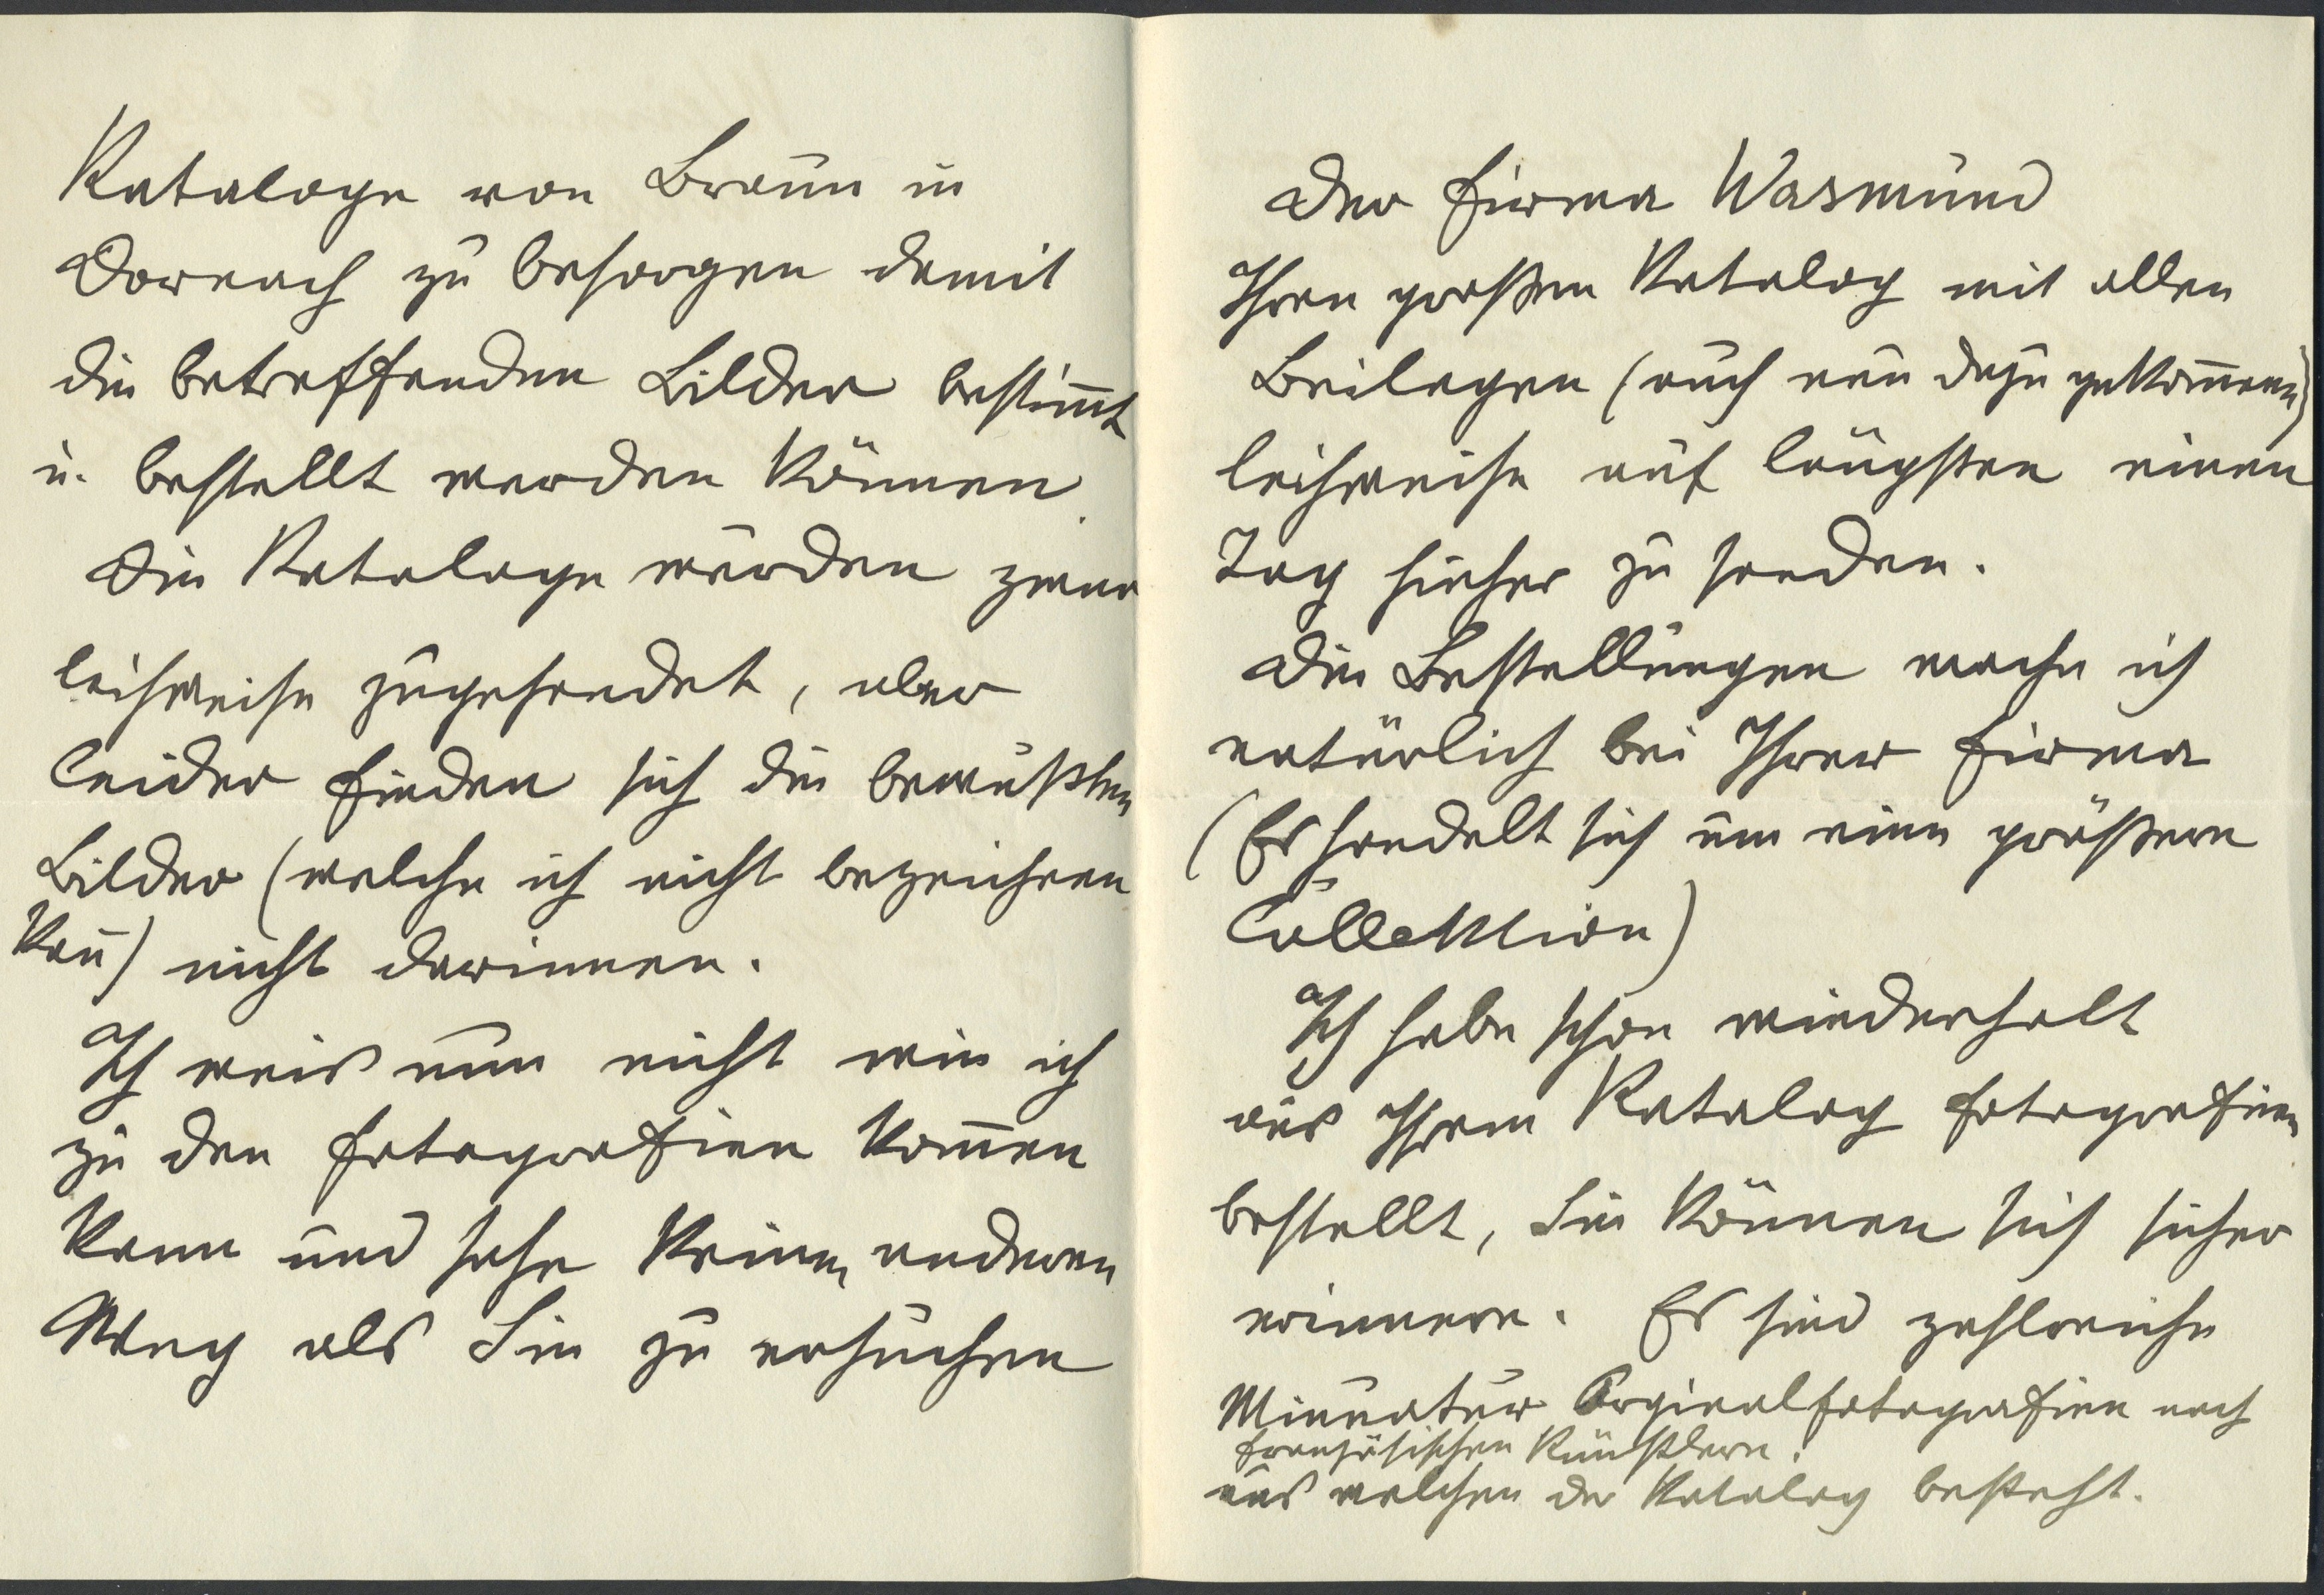 Kataloge von Braun in
Dornach zu besorgen damit
die betreffenden Bilder bestim̅t
u. bestellt werden können.
Die Kataloge wurden zwar
leihweise zugesendet, aber
leider finden sich die bewußten
Bilder (welche ich nicht bezeichnen
kan̅) nicht darinnen.
Ich weis nun nicht wie ich
zu den Fotografien kom̅en
kann und sehe keinen anderen
Weg als Sie zu ersuchen
der Firma Wasmund
Ihren großen Katalog mit allen
Beilagen (auch neu dazu gekom̅enen)
leihweise auf längsten einen
Tag hieher zu senden.
Die Bestellungen mache ich
natürlich bei Ihrer Firma
(Es handelt sich um eine größere
Collektion)
Ich habe schon wiederholt
aus Ihrem Katalog Fotografien
bestellt, Sie können sich sicher
erinnern. Es sind zahlreiche
Minnatur Orginalfotografien nach
französischen Künstlern.
aus welchen der Katalog besteht.